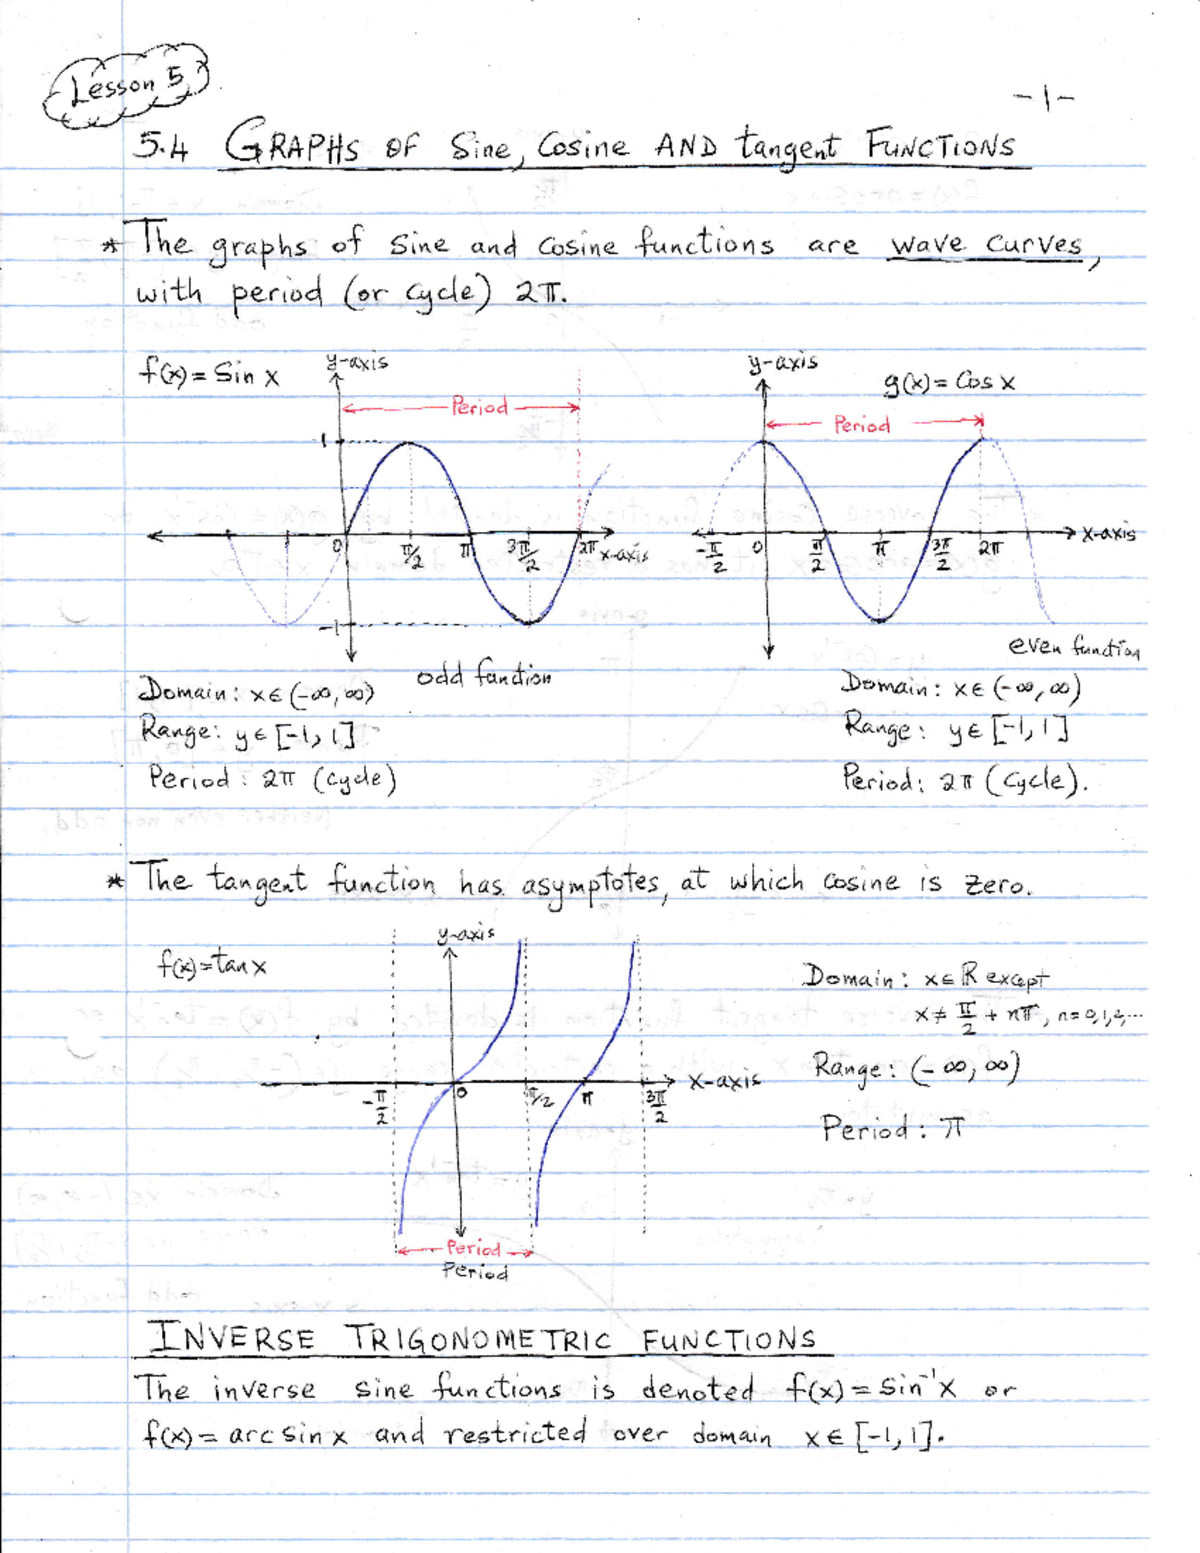 Lesson 5
-1-
5.4 GRAPHS OF Sine, Cosine AND tangent FUNCTIONS
* The graphs of Sine and Cosine functions are wave curves,
with period (or cycle) 2π.
f(x) = Sin x
y-axis
Period
1
0 π/2 π 3π/2 2π x-axis
-1
odd function
Domain: x∈(-∞,∞)
Range: y∈[-1,1]
Period: 2π (cycle)
y-axis
g(x) = Cos x
Period
-π/2 0 π/2 π 3π/2 2π x-axis
even function
Domain: x∈(-∞,∞)
Range: y∈[-1,1]
Period: 2π (cycle).
* The tangent function has asymptotes, at which cosine is zero.
f(x)=tan x
y-axis
-π/2 0 π/2 π 3π/2 x-axis
Period
Period
Domain: x∈R except
x≠ π/2 + nπ, n=0,1,2,...
Range: (-∞,∞)
Period: π
INVERSE TRIGONOMETRIC FUNCTIONS
The inverse sine functions is denoted f(x) = Sin⁻¹x or
f(x) = arc Sin x and restricted over domain x∈[-1,1].